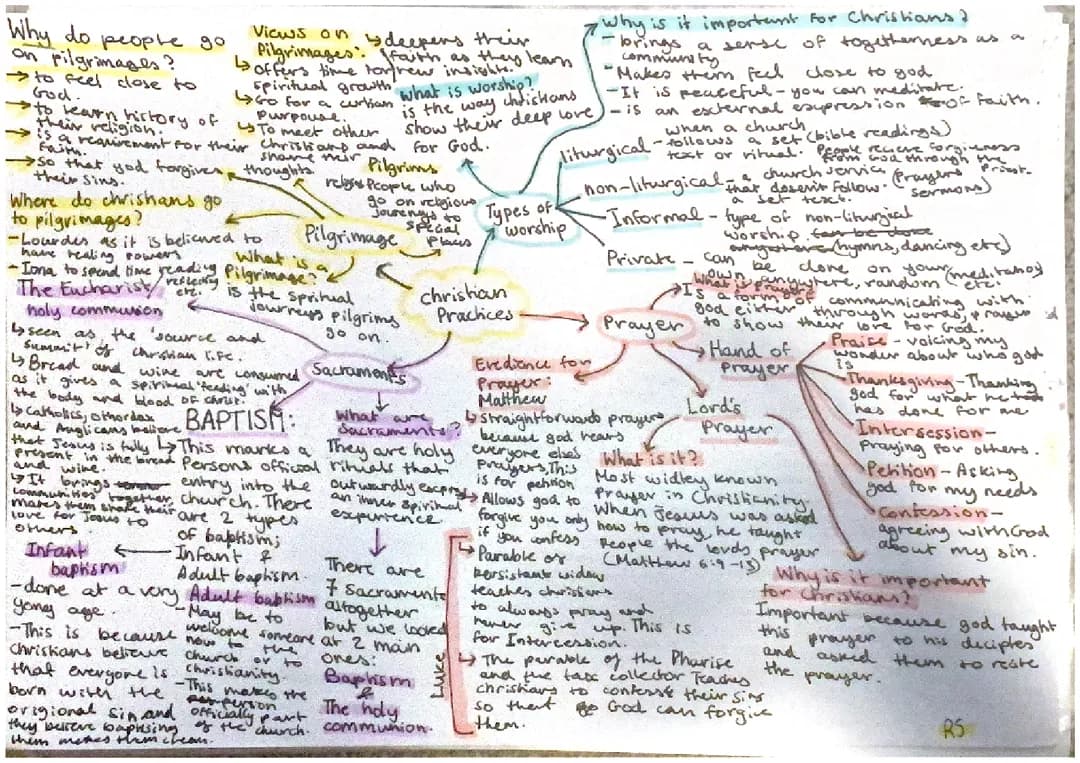 Why do people go
on pilgrimages?
→ to feel close to
God.
→ to learn history of
their religion.
→ is a requirement for their
faith.
→ so that god forgives
their sins.
Views on
Pilgrimages:
↳ offers time for
spiritual growth
↳ Go for a certian
purpouse.
↳ To meet other
christians and
share their
thoughts
↳ deepens their
faith as they learn
new insight
What is worship?
is the way christians
show their deep love
for God.
Why is it important for Christians?
- brings a sense of togetherness as a
community
- Makes them feel close to god
- It is peaceful - you can meditate.
- is an external expression of faith.
Types of
worship
liturgical - when a church
follows a set (bible readings)
text or ritual. People recieve forgiveness
from God through the
Priest.
non-liturgical - a church service (prayers
that doesn't follow. sermons)
a set text.
Informal - type of non-liturgical
worship can be done
anywhere (hymns, dancing etc)
Private - can be done on your
own anywhere, random (meditation)
etc.
Pilgrims
People who
go on religious
journeys to
special
places
Pilgrimage
Where do christians go
to pilgrimages?
- Lourdes as it is believed to
have healing powers
- Iona to spend time reading
reflecting
etc.
What is a
Pilgrimage?
is the spritual
journeys pilgrims
go on.
christian
Practices
The Eucharist/
holy communion
↳ seen as the 'source and
summit' of christian life.
↳ Bread and wine are consumed
as it gives a spiritual 'feeding' with
the body and blood of christ.
↳ Catholics, othordox
and Anglicans believe
that Jesus is fully
present in the bread
and wine.
↳ It brings
communities together,
makes them share their
love for Jesus to
others.
Sacraments
BAPTISM:
↳ This marks a
Persons official
entry into the
church. There
are 2 types
of baptism;
Infant &
Adult baptism.
Infant
baptism
- done at a very
yong age.
- This is because
christians believe
that everyone is
born with the
origional sin and
they believe baptising
them makes them clean.
Adult baptism
- May be to
welcome someone
new to the
church or to
christianity.
- This makes the
person
officially part
of the church.
What are
Sacraments?
They are holy
rituals that
outwardly express
an inner spiritual
experience.
There are
7 Sacraments
altogether
but we looked
at 2 main
ones:
Baptism
&
The holy
communion.
Prayer
What is prayer
Is a form of communicating with
god either through words, prayers
to show their love for God.
Evedience for
Prayer:
Matthew
↳ Straightforward prayers
because god hears
everyone elses
prayers, This
is for petition
↳ Allows god to
forgive you only
if you confess
Luke
↳ Parable of
persistant widow
teaches christians
to always pray and
never give up. This is
for Intercession.
↳ The parable of the Pharise
and the tax collector Teaches
christians to confess their sins
so that God can forgive
them.
Hand of
Prayer
Praise - voicing my
wonder about who god
is
Thanksgiving - Thanking
god for what he
has done for me
Intersession -
Praying for others.
Petition - Asking
god for my needs
Confession -
agreeing with God
about my sin.
Lord's
Prayer
What is it?
Most widley known
Prayer in Christianity.
When Jesus was asked
how to pray, he taught
People the lords prayer
(Matthew 6:9-13)
Why is it important
for Christians?
Important because god taught
this prayer to his deciples
and asked them to recite
the prayer.
RS